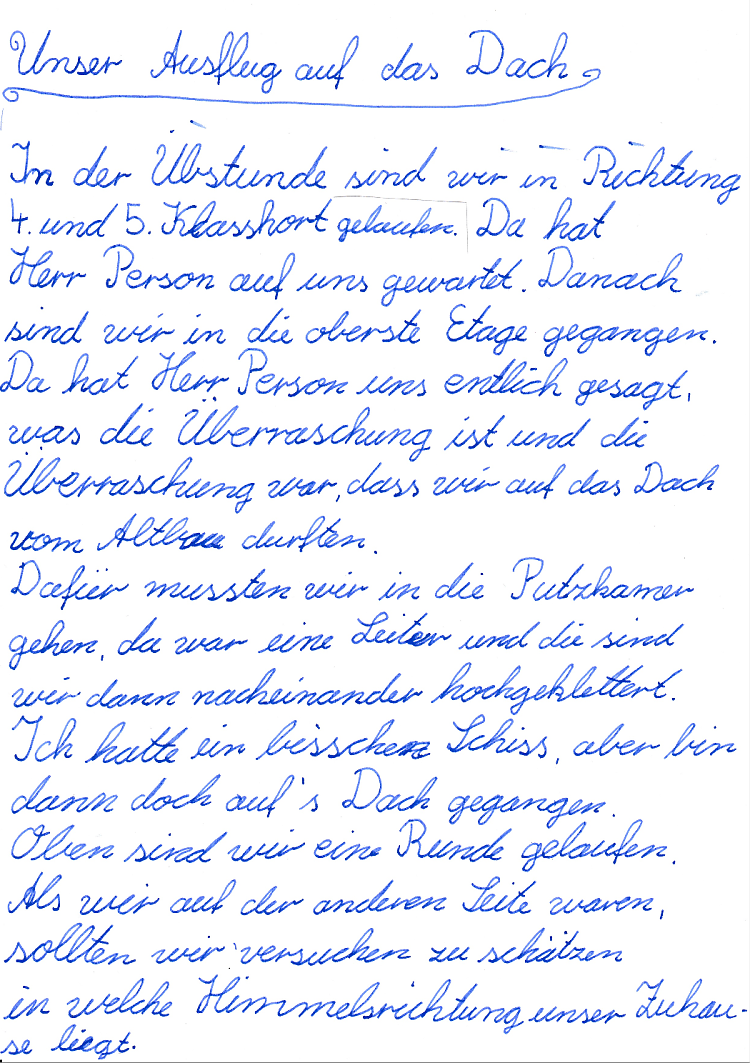 Unser Ausflug auf das Dach
In der Übstunde sind wir in Richtung
4. und 5. Klasshort gelaufen. Da hat
Herr Person auf uns gewartet. Danach
sind wir in die oberste Etage gegangen.
Da hat Herr Person uns entlich gesagt,
was die Überraschung ist und die
Überraschung war, dass wir auf das Dach
vom Altbau durften.
Dafür mussten wir in die Putzkamer
gehen, da war eine Leiter und die sind
wir dann nacheinander hochgeklettert.
Ich hatte ein bisschen Schiss, aber bin
dann doch auf's Dach gegangen.
Oben sind wir eine Runde gelaufen.
Als wir auf der anderen Seite waren,
sollten wir versuchen zu schätzen
in welche Himmelsrichtung unser Zuhau-
se liegt.